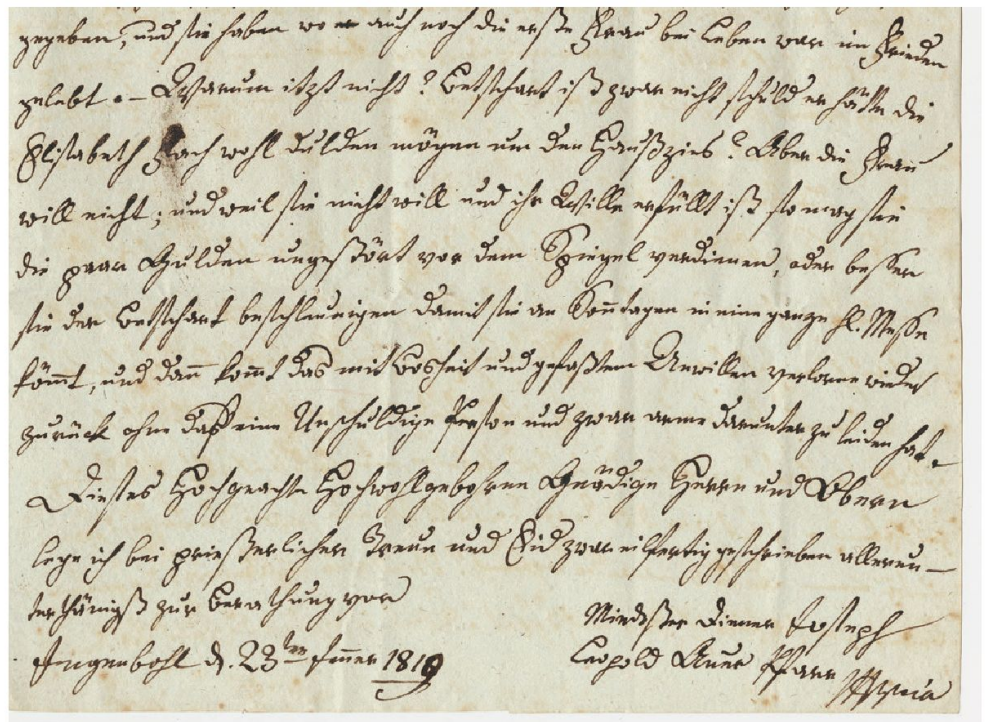 gegeben, und sie haben wo er auch noch die erste Frau bei Leben war im Frieden
gelebt. – Warum itzt nicht? Betschart ist zwar nicht schuld er hätte die
Elisabeth Flach wohl dulden mögen um den Haußzins? Aber die Frau
will nicht; und weil sie nicht will und ihr Wille erfüllt ist so mag sie
die paar Gulden ungestört vor dem Spiegel verdienen, oder besser
sie der Betschart beschleunigen damit sie an Sonntagen in eine ganze hl. Messe
kömmt, und dann kommt das mit Bosheit und gefaßtem Unwillen verlorne wieder
zurück ohne daß eine Unschuldige Person und zwar arme darunter zu leiden hat.
Dieses Hochgeachte Hochwohlgebohrne Gnädige Herren und Obern
lege ich bei priesterlicher Treue und Eid zwar eilfertig geschrieben allerun–
terthänigst zur Berathung vor
Mindester Diener Joseph
Ingenbohl d. 23ten Jenner 1819
Leopold Pfarr